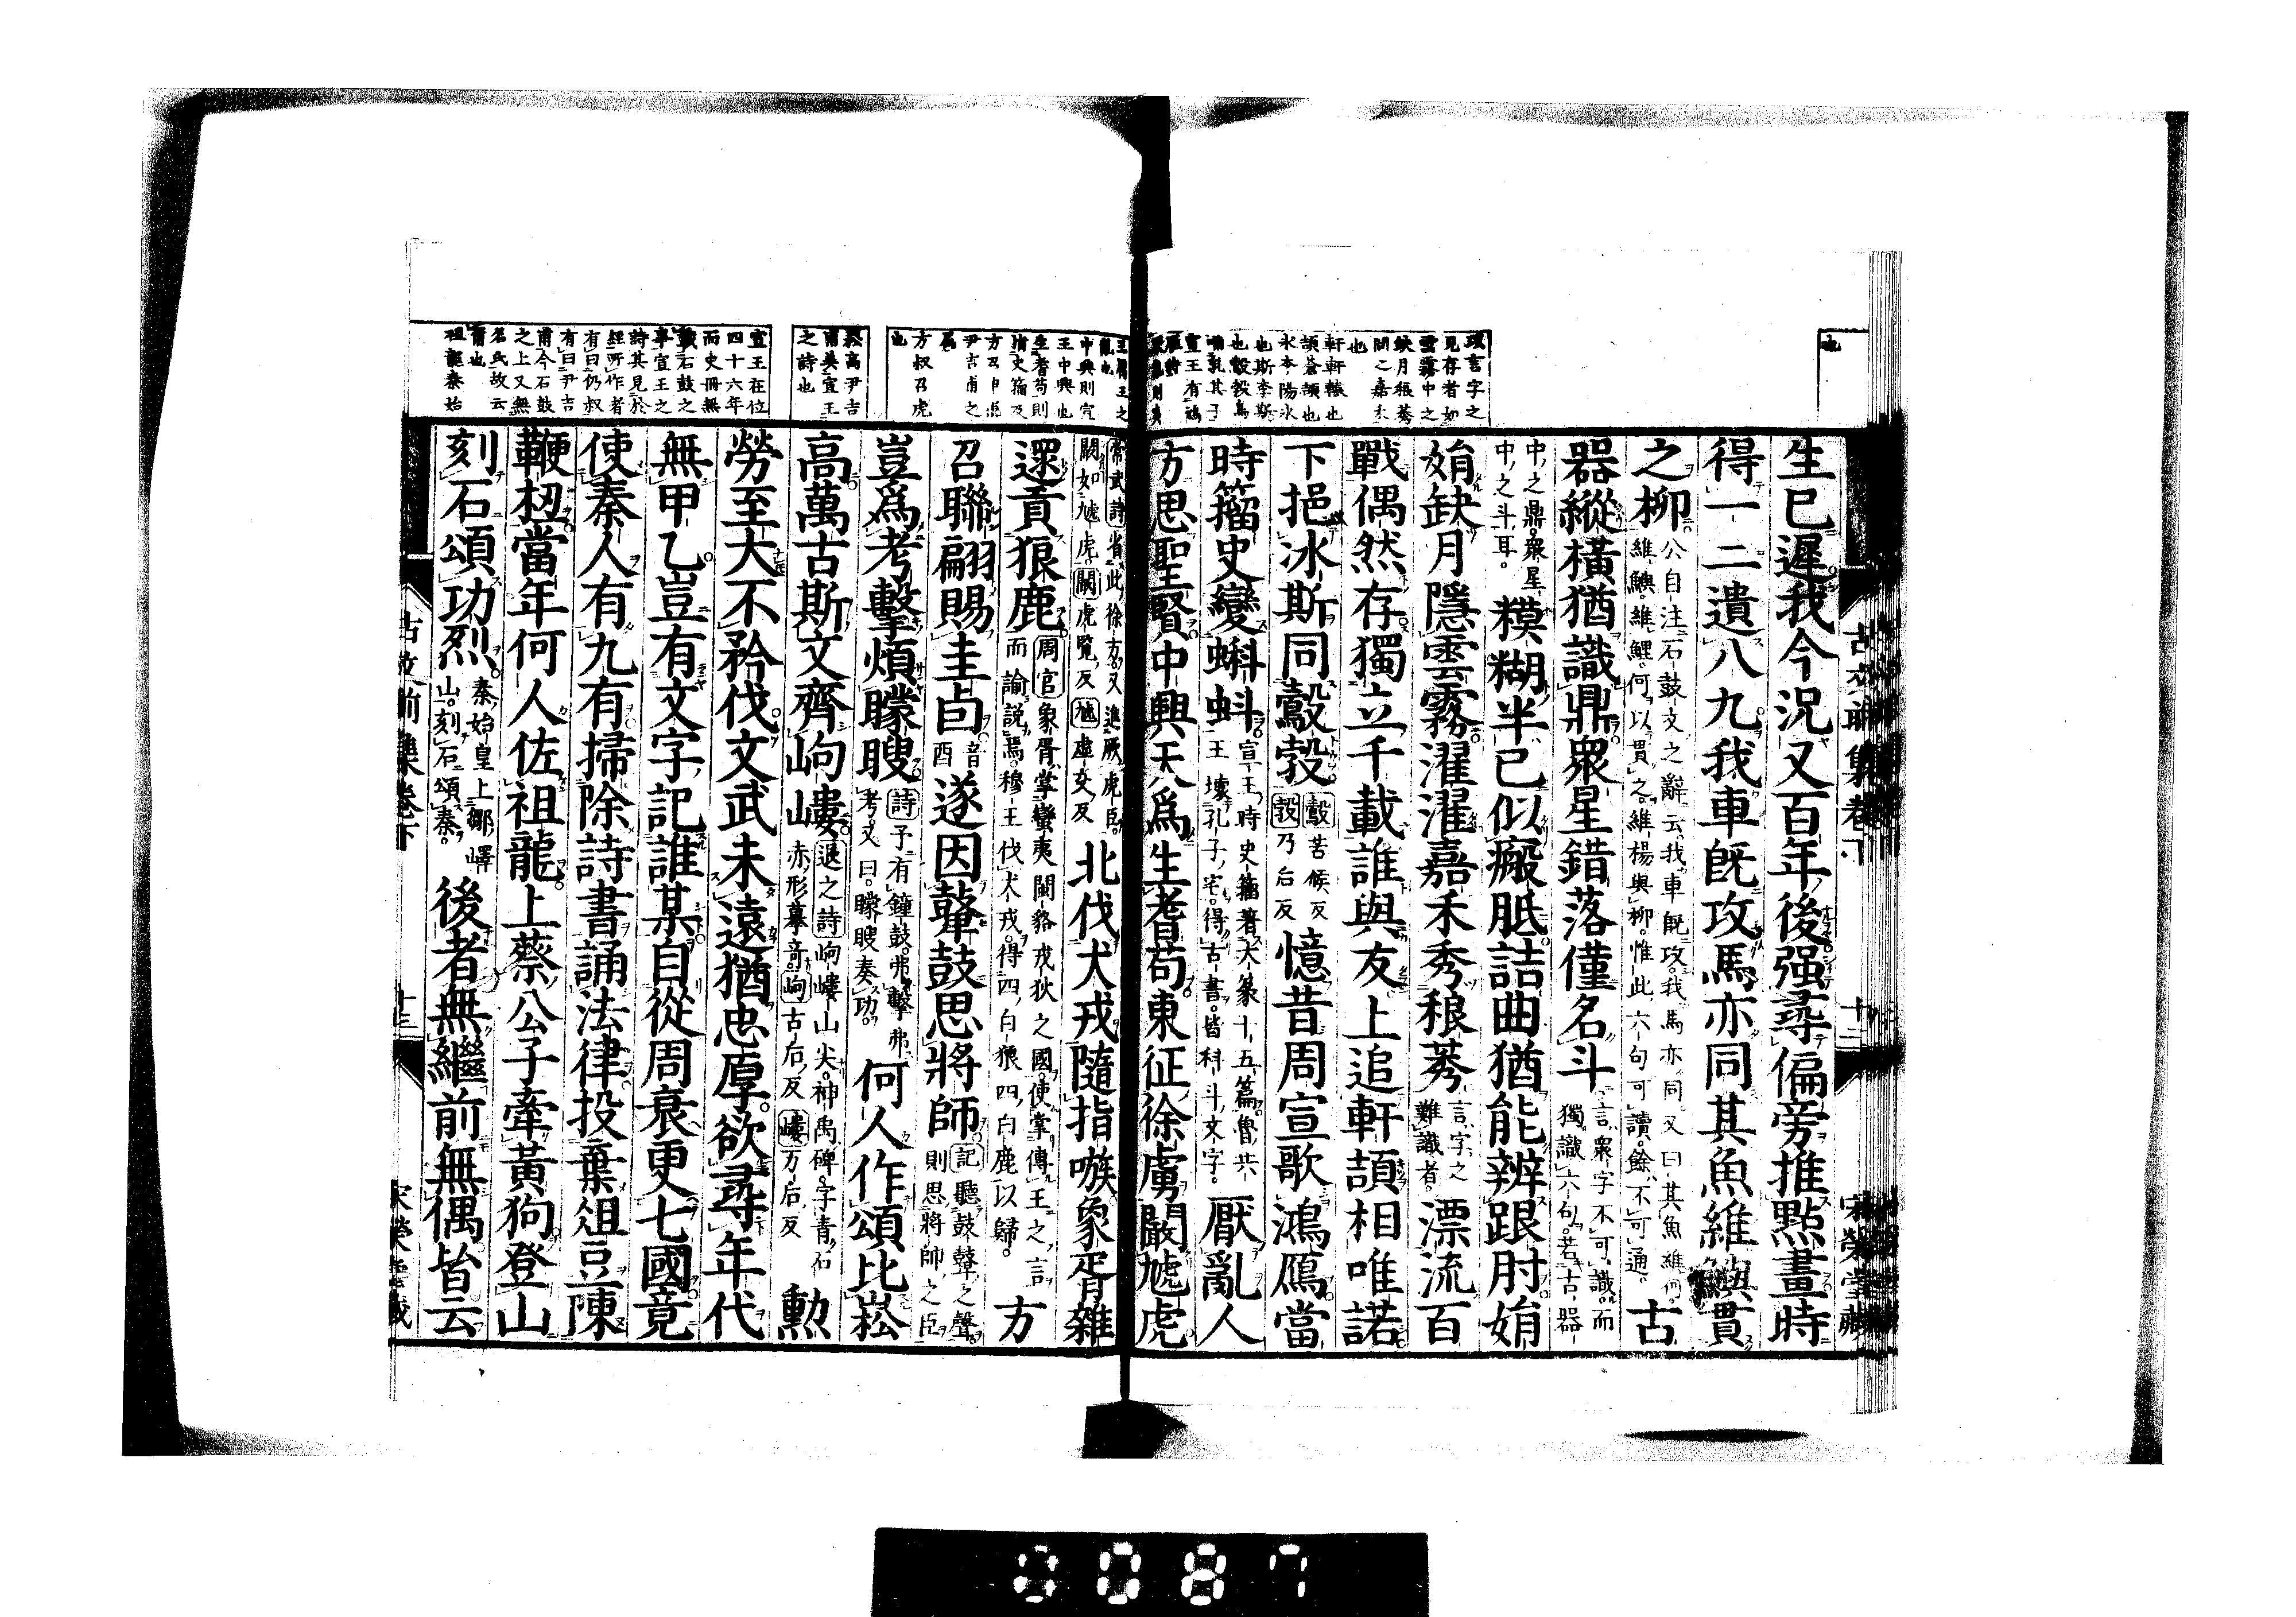 生已遲我今況又百年後强尋偏旁推點畫時
得一二遺八九我車旣攻馬亦同其魚維鱮貫
之柳
公自注石鼓文之辭云我車旣攻我馬亦同又曰其魚維何
維鱮維鯉何以貫之維楊與柳惟此六句可讀餘不可通
古
器縱橫猶識鼎眾星錯落僅名斗
言眾字不可識而
獨識六句若古器
中之鼎眾星
中之斗耳
糢糊半已似瘢胝詰曲猶能辨跟肘娟
娟缺月隱雲霧濯濯嘉禾秀稂莠
言字之
難識者
漂流百
戰偶然存獨立千載誰與友上追軒頡相唯諾
下挹冰斯同鷇㝅
鷇苦候反
㝅乃后反
憶昔周宣歌鴻鴈當
時籀史變蝌蚪
宣王時史籀著大篆十五篇魯共
王壞孔子宅得古書皆科斗文字
厭亂人
方思聖賢中興天爲生耆苟東征徐虜闞虓虎
常武詩省此徐方又進厥虎臣
闞如虓虎闞虎覽反虓虛交反
北伐犬戎隨指嗾象胥雜
遝貢狼鹿
周官象胥掌蠻夷閩貉戎狄之國使掌傳王之言
而諭說焉穆王伐犬戎得四白狼四白鹿以歸
方
召聯翩賜圭卣
音
酉
遂因鼙鼓思將師
記聽鼓鼙之聲
則思將帥之臣
豈爲考擊煩矇瞍
詩予有鐘鼓弗擊弗
考又曰矇瞍奏功
何人作頌比崧
高萬古斯文齊岣嶁
退之詩岣嶁山尖神禹碑字青石
赤形摹奇岣古后反嶁力后反
勲
勞至大不矜伐文武未遠猶忠厚欲尋年代
無甲乙豈有文字記誰某自從周衰更七國竟
使秦人有九有掃除詩書誦法律投棄俎豆陳
鞭杻當年何人佐祖龍上蔡公子牽黃狗登山
刻石頌功烈
秦始皇上鄒嶧
山刻石頌秦
後者無繼前無偶皆云
古文前集卷下
十三
項言字之
見存者如
雲霧中之
缺月稂莠
間之嘉禾
也
軒軒轅也
頡蒼頡也
冰李陽冰
也斯李斯
宣王有鴻
王中興也
中興則宣
生耆苟則
指史籀及
方召申虎
尹吉甫之
屬
方叔召虎
也
崧高尹吉
甫美宣王
之詩也
宣王在位
四十六年
而史冊無
載石鼓之
事宣王之
詩其見於
經所作者
有曰仍叔
有曰尹吉
甫今石鼓
之上又無
名氏故云
爾也
祖龍秦始
0087